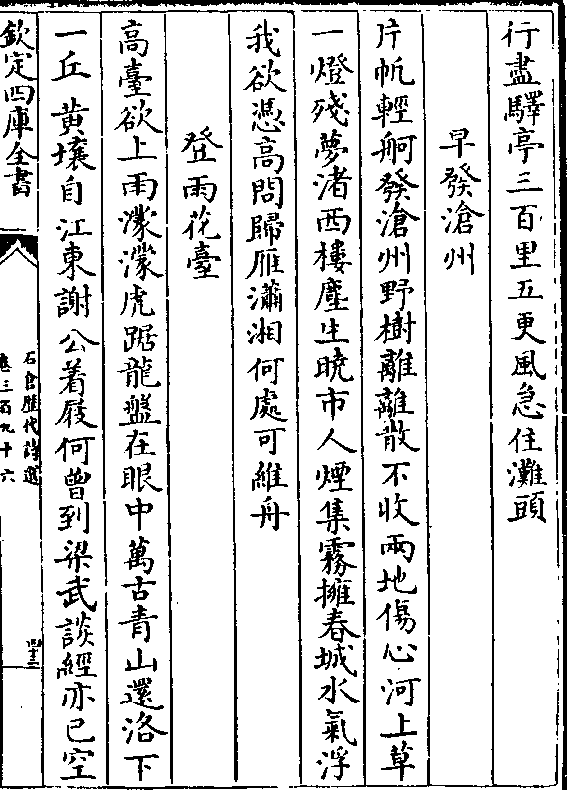 行盡驛亭三百里五更風急住灘頭
早發滄州
片帆輕舸發滄州野樹離離散不收兩地傷心河上草
一燈殘夢渚西樓塵生曉市人煙集霧擁春城水氣浮
我欲憑高問歸雁瀟湘何處可維舟
登雨花臺
高臺欲上雨濛濛虎踞龍盤在眼中萬古青山還洛下
一丘黃壤自江東謝公着屐何曾到梁武談經亦已空
欽定四庫全書
石倉歷代詩選
卷三百九十六
四十三